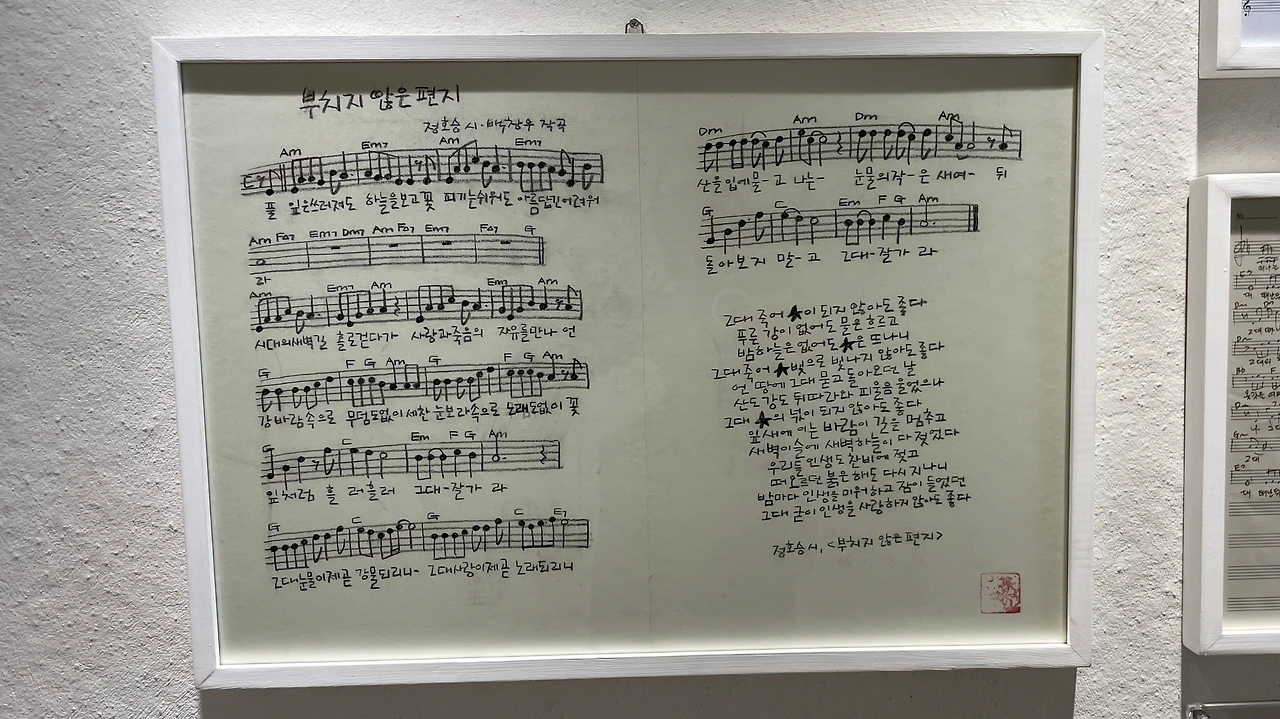 부치지 않은 편지
정호승 시·백창우 작곡
Am Em7 Am Em7
풀 잎은쓰러져도 하늘을보고꽃 피기는쉬워도 아름답긴어려워
Am Fa7 Em7 Dm7 Am Fa7 Em7 Fa7 G
라
Am Em7 Am Em7 Am
시대의새벽길 홀로걷다가 사랑과죽음의 자유를만나 언
G F G Am G F G Am
강바람속으로 무덤도없이 세찬 눈보라속으로 노래도없이 꽃
G C Em F G Am
잎처럼 흘 러흘러 그대-잘가 라
G C G C E7
그대눈물이제곧 강물되리니- 그대사랑이제곧 노래되리니
Dm Am Dm Am
산을입에물-고 나는- 눈물의작-은 새여- 뒤
G C Em F G Am
돌아보지 말-고 그대-잘가 라
그대 죽어 ★이 되지 않아도 좋다
푸른 강이 없어도 물은 흐르고
밤하늘은 없어도 ★은 뜨나니
그대 죽어 ★빛으로 빛나지 않아도 좋다
언 땅에 그대 묻고 돌아오던 날
산도 강도 뒤따라와 피울음 울었으나
그대 ★의 넋이 되지 않아도 좋다
잎새에 이는 바람이 길을 멈추고
새벽이슬에 새벽하늘이 다 젖었다
우리들 인생도 찬비에 젖고
떠오르던 붉은 해도 다시 지나니
밤마다 인생을 미워하고 잠이 들었던
그대 굳이 인생을 사랑하지 않아도 좋다
정호승 시, <부치지 않은 편지>